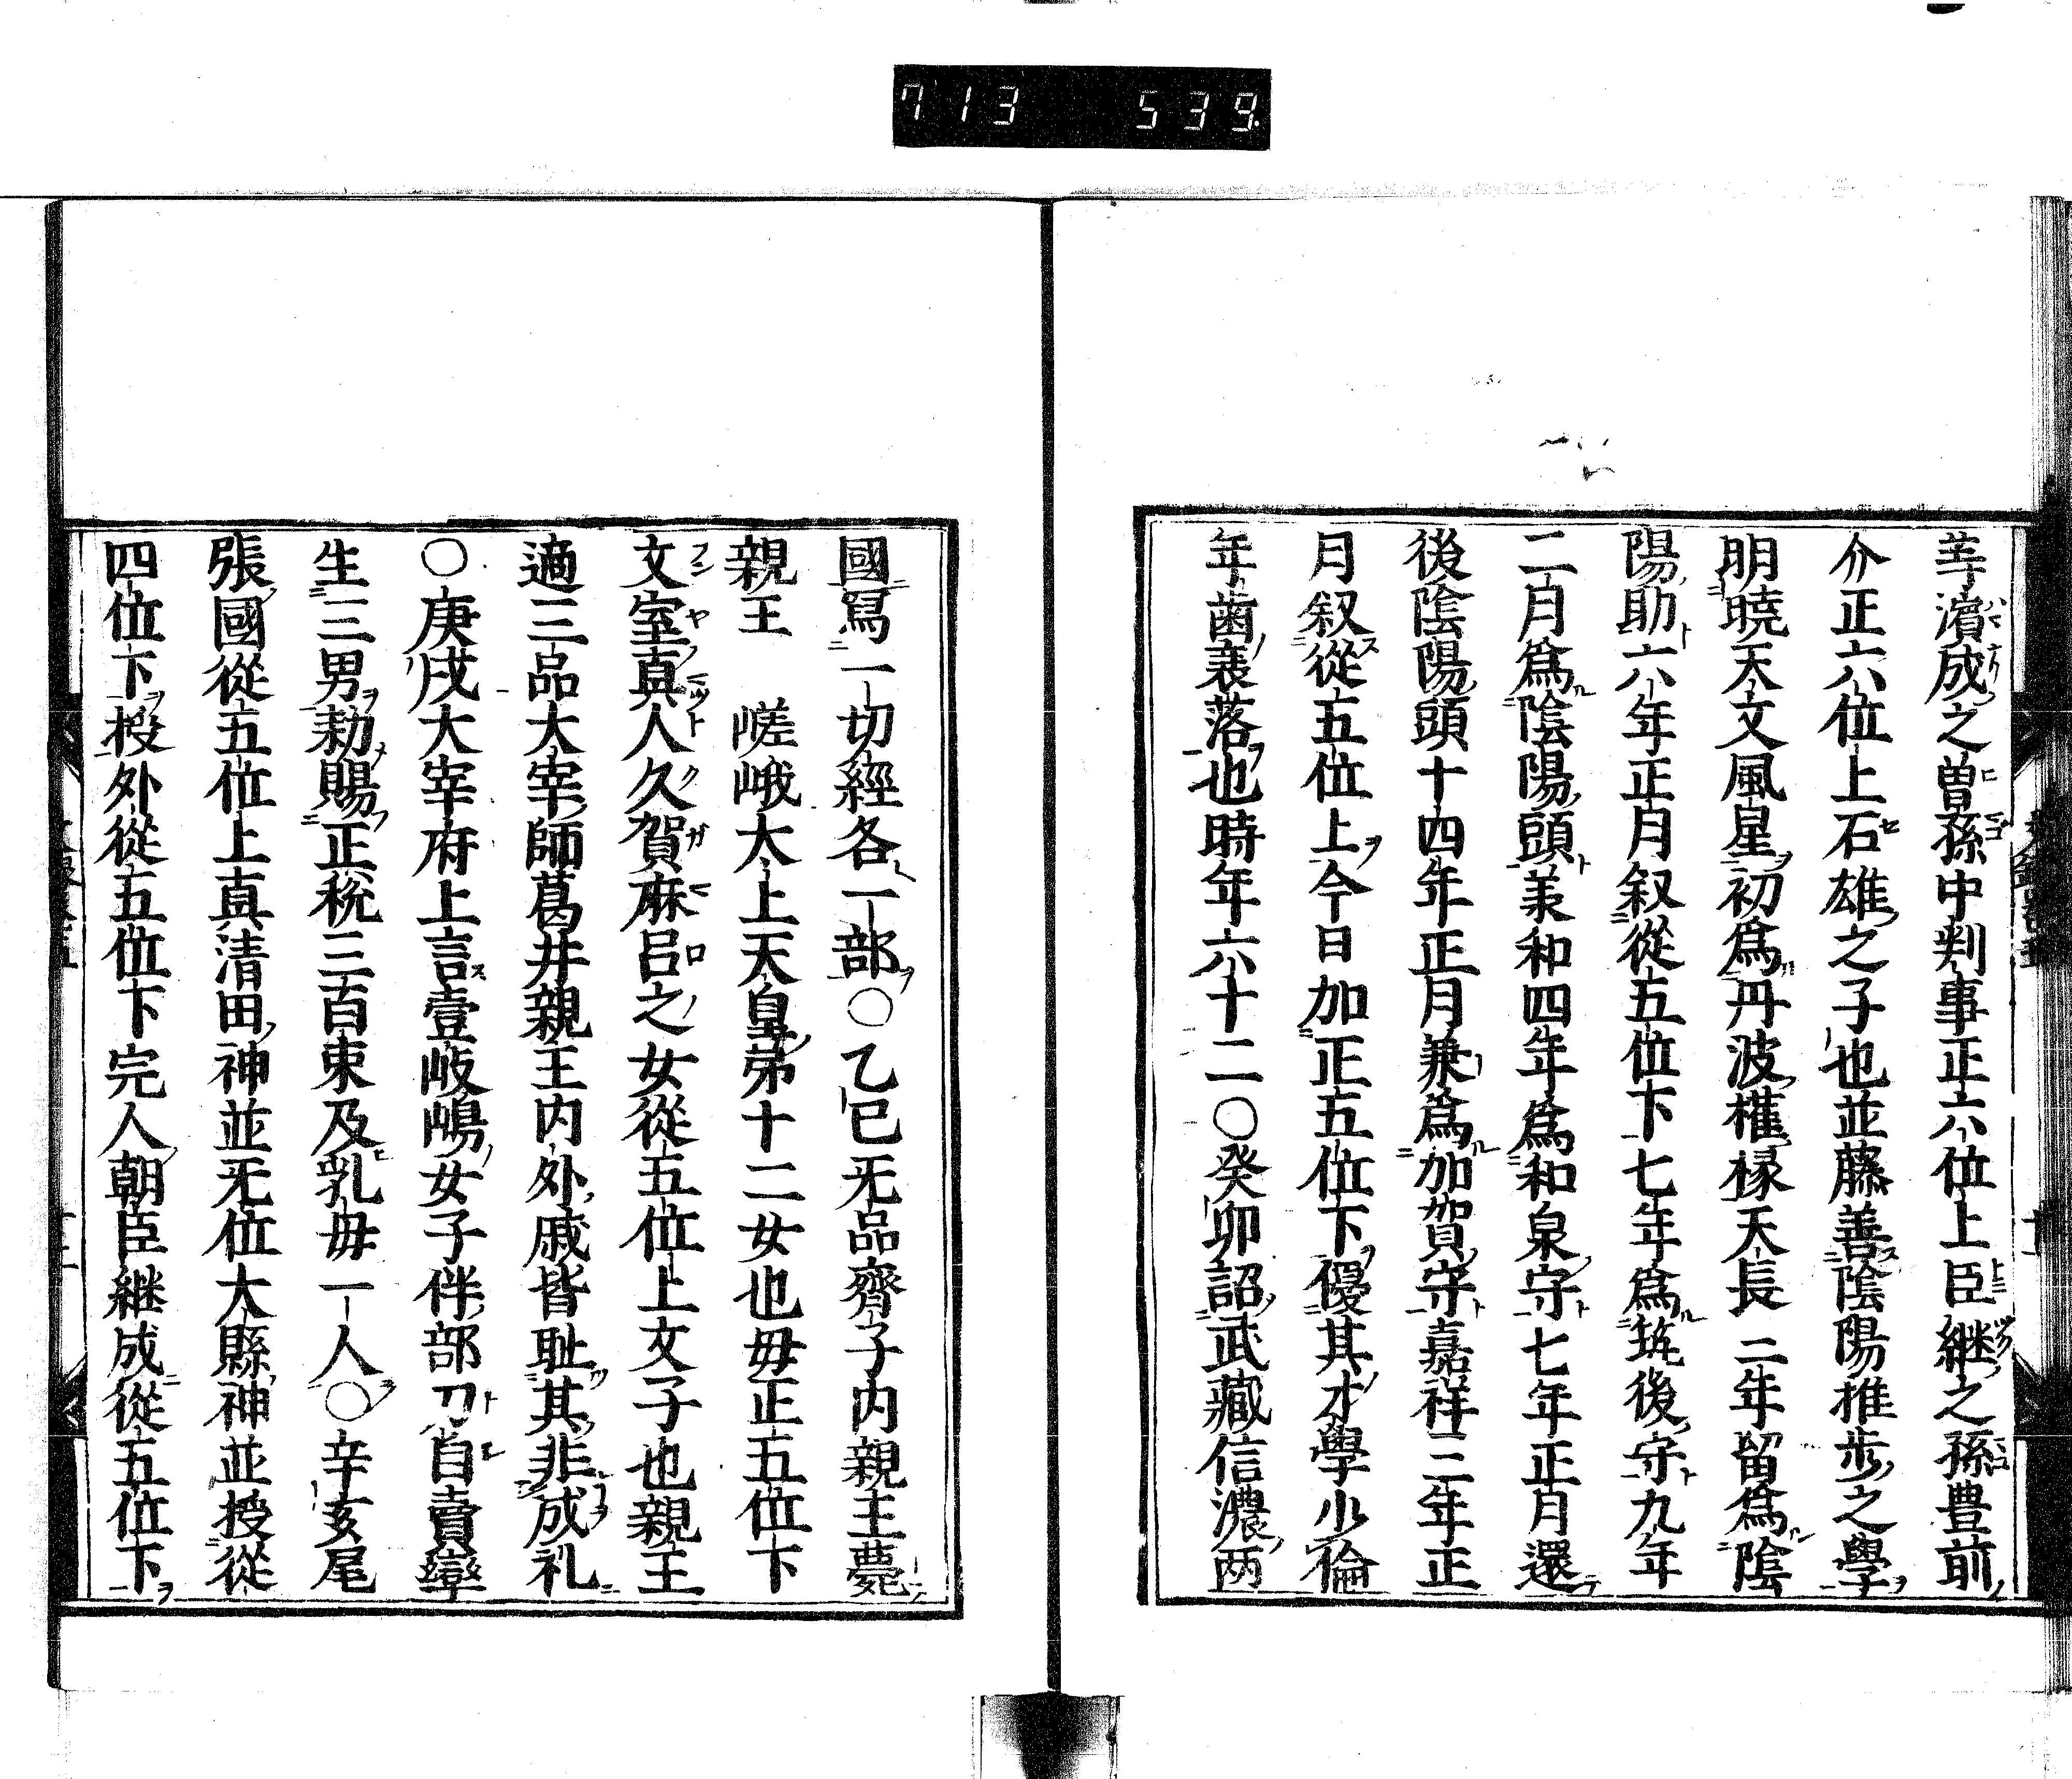 713 539
莘濱成之曽孫中判事正六位上臣継之孫豊前
介正六位上石雄之子也並藤善陰陽推歩之學
明暁天文風星初爲丹波權掾天長二年留爲陰
陽助六年正月叙從五位下七年爲筑後守九年
二月爲陰陽頭兼和四年爲和泉守七年正月還
後陰陽頭十四年正月兼爲加賀守嘉祥三年正
月叙從五位上今日加正五位下優其才學少倫
年歯衰落也時年六十二〇癸卯詔武藏信濃两
國冩一切經各一部〇乙巳无品齊子内親王薨
親王 嵯峨太上天皇弟十二女也母正五位下
文室真人久賀麻呂之女從五位上文子也親王
適三品大宰師葛井親王内外戚皆耻其非成礼
〇庚戌大宰府上言壹岐嶋女子伴部刀自賣孿
生三男勅賜正税三百束及乳母一人〇辛亥尾
張國從五位上真清田神並无位大縣神並授從
四位下授外從五位下完人朝臣継成從五位下